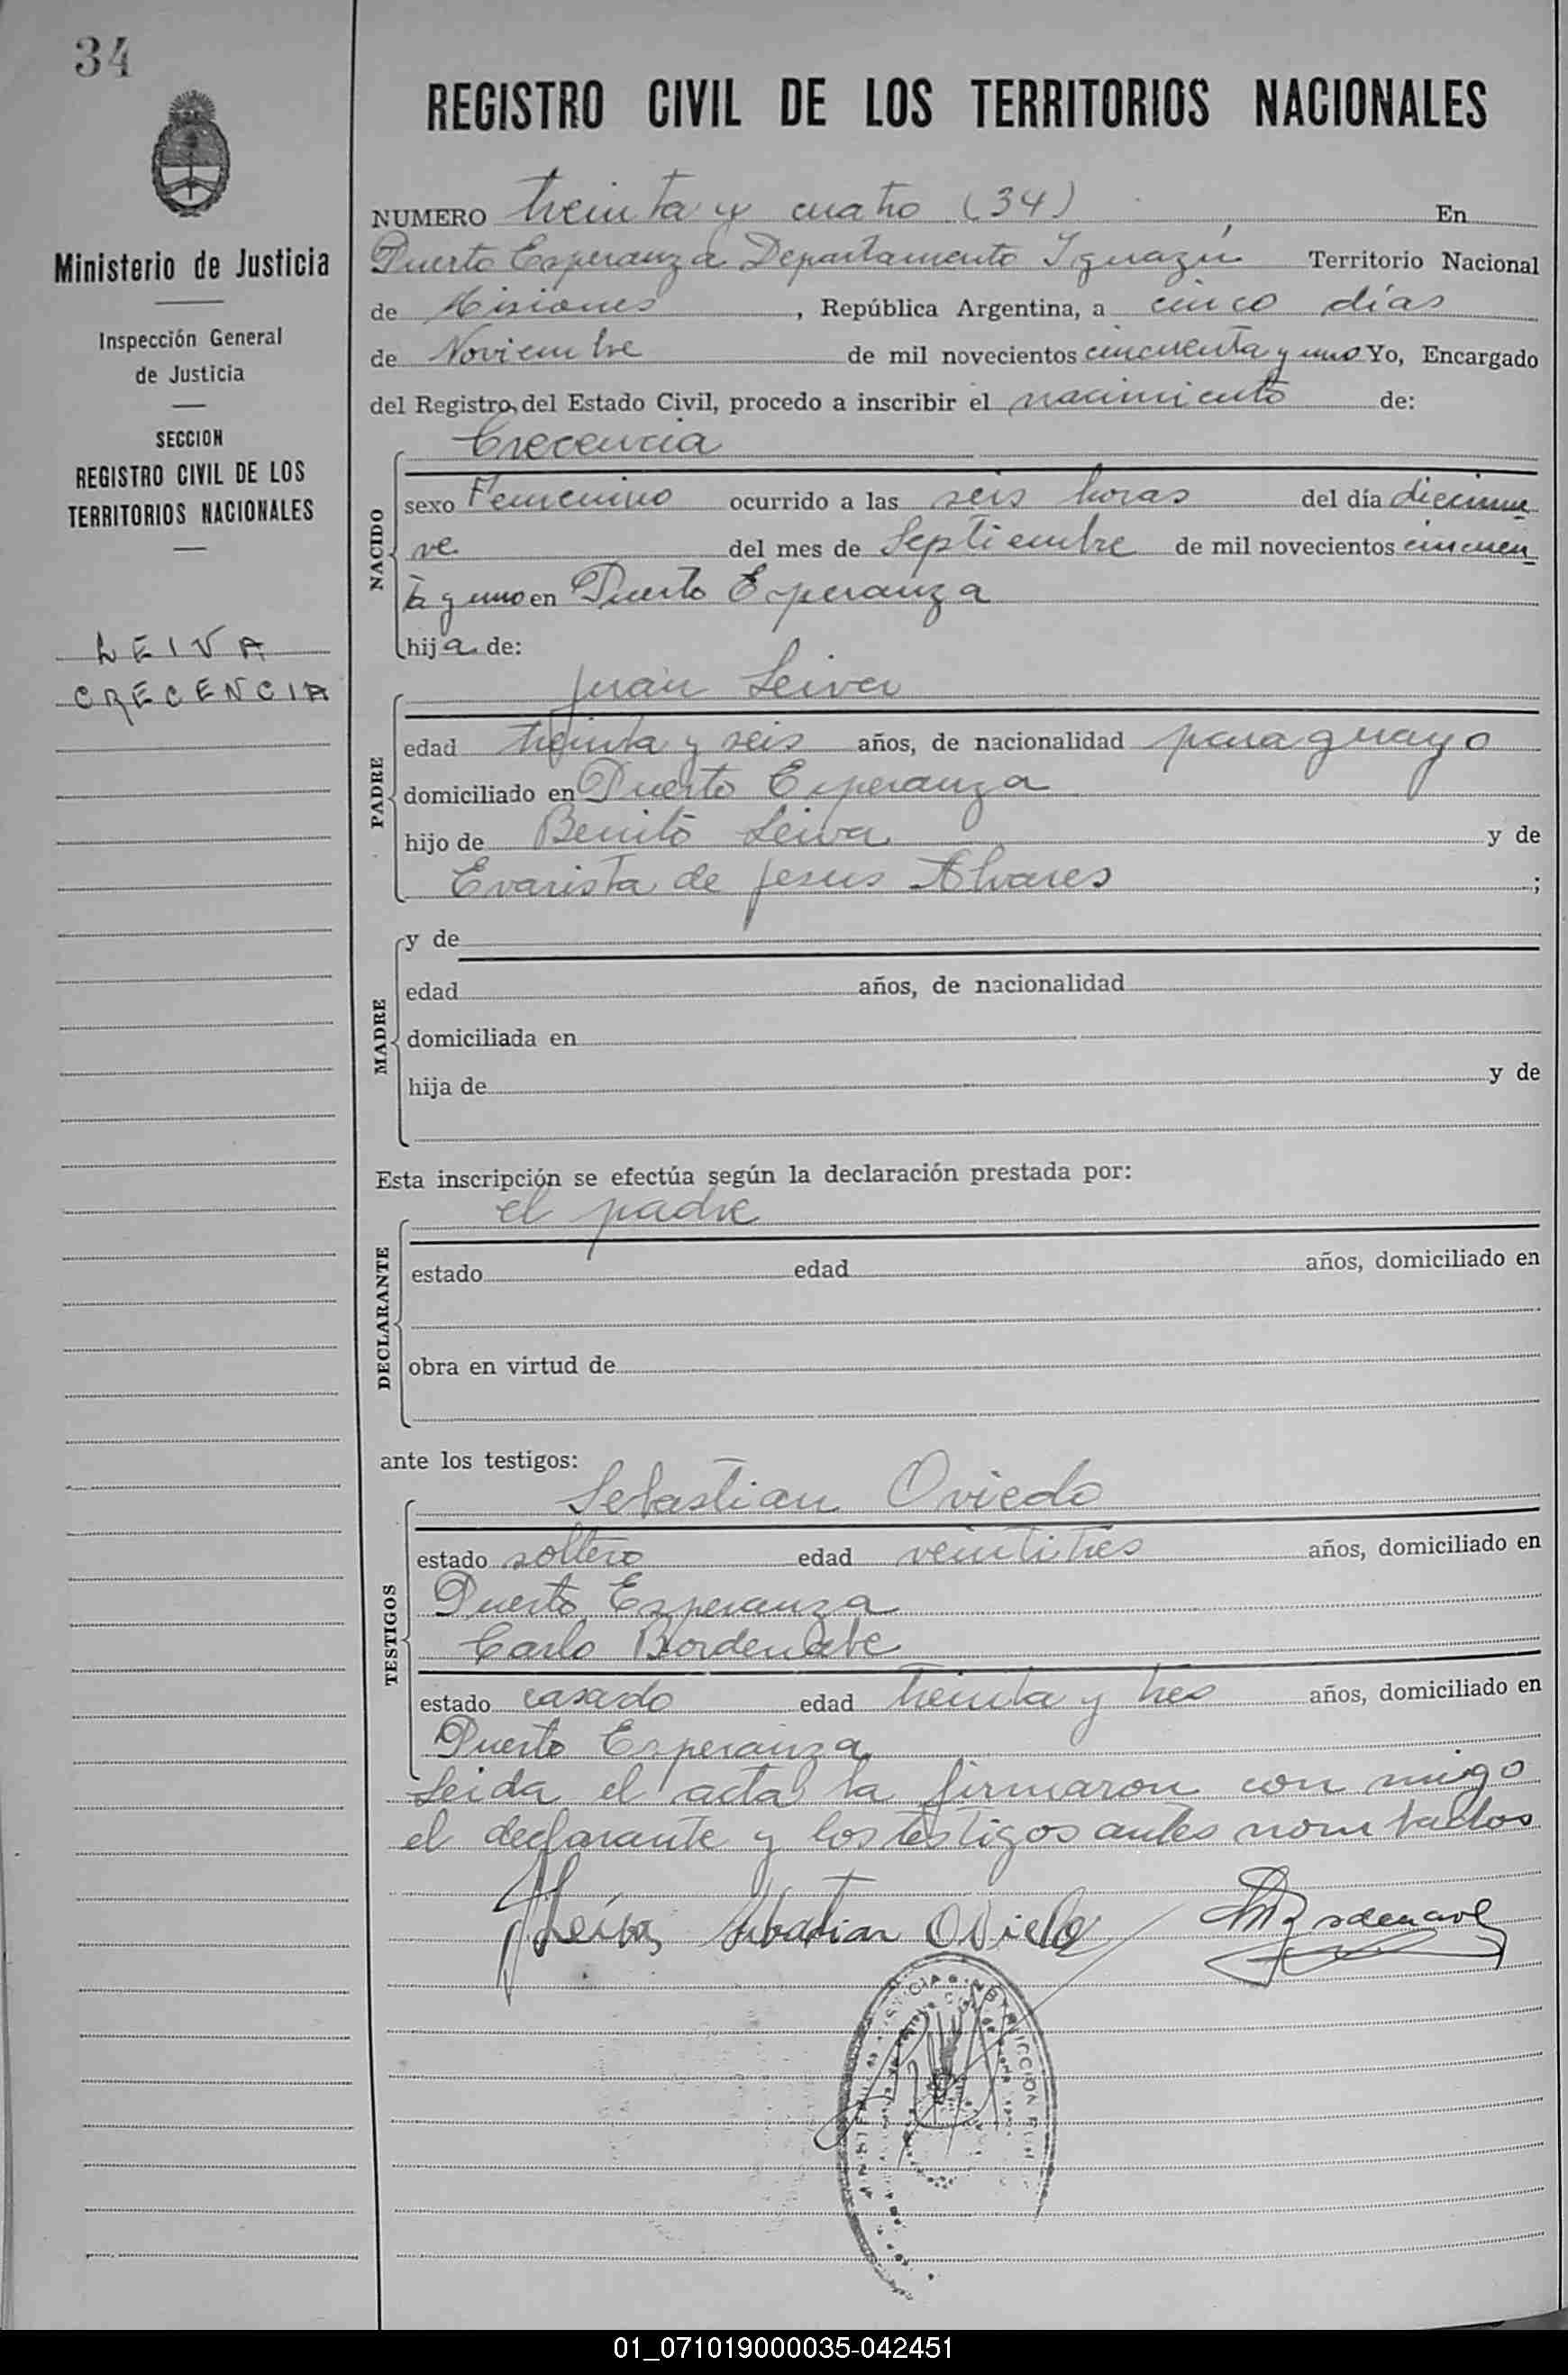 34
REGISTRO CIVIL DE LOS TERRITORIOS NACIONALES
Ministerio de Justicia
Inspección General
de Justicia
SECCION
REGISTRO CIVIL DE LOS
TERRITORIOS NACIONALES
LEIVA
CRECENCIA
NUMERO treinta y cuatro (34) En
Puerto Esperanza Departamento Iguazú Territorio Nacional
de Misiones, República Argentina, a cinco días
de Noviembre de mil novecientos cincuenta y uno Yo, Encargado
del Registro del Estado Civil, procedo a inscribir el nacimiento de:
NACIDO
Crecencia
sexo Femenino ocurrido a las seis horas del día diecinue
ve del mes de Septiembre de mil novecientos cincuen
ta y uno en Puerto Esperanza
hija de:
PADRE
Juan Leiva
edad treinta y seis años, de nacionalidad paraguayo
domiciliado en Puerto Esperanza
hijo de Benito Leiva y de
Evarista de Jesus Alvares ;
MADRE
y de
edad años, de nacionalidad
domiciliada en
hija de y de
Esta inscripción se efectúa según la declaración prestada por:
DECLARANTE
el padre
estado edad años, domiciliado en
obra en virtud de
ante los testigos:
TESTIGOS
Sebastian Oviedo
estado soltero edad veintitres años, domiciliado en
Puerto Esperanza
Carlo Bordenabe
estado casado edad treinta y tres años, domiciliado en
Puerto Esperanza
Leida el acta la firmaron con migo
el declarante y los testigos antes nombrados
JLeiva Sebastian Oviedo
01_071019000035-042451